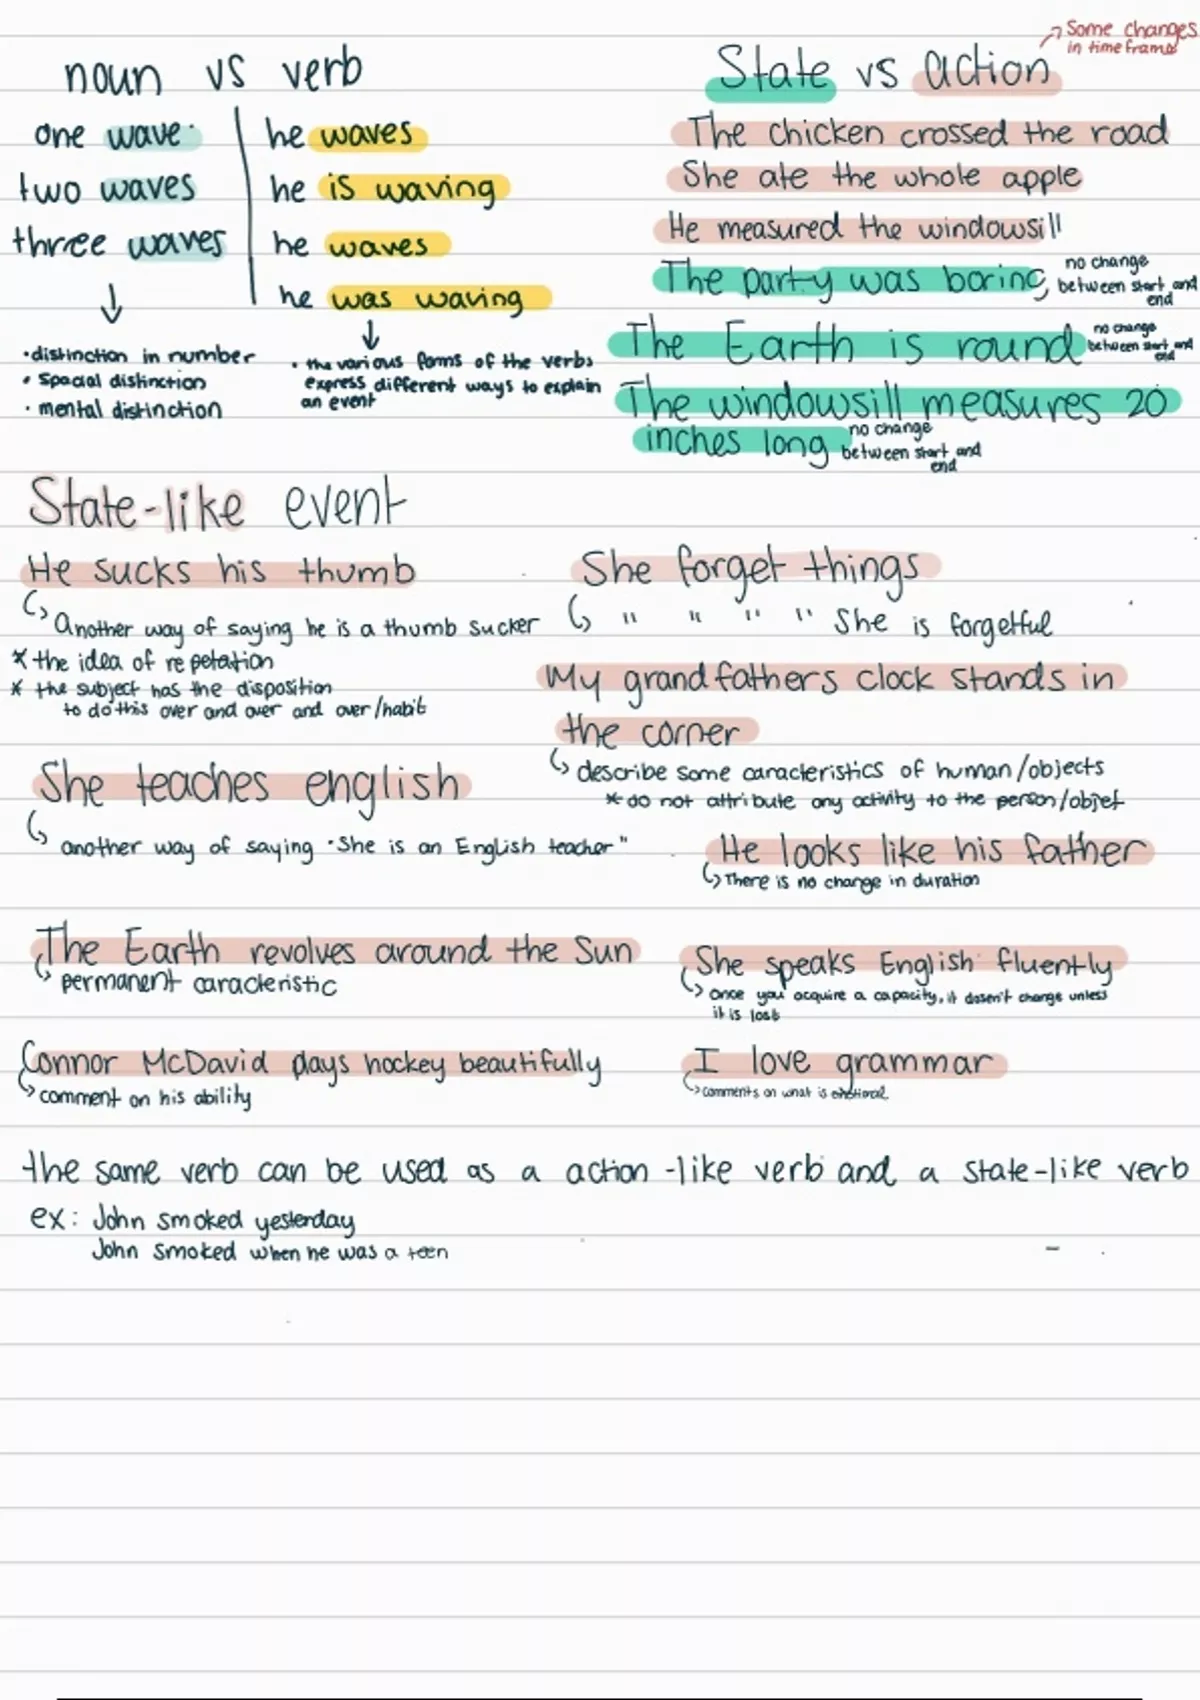 noun vs verb
one wave
two waves
three waves
he waves
he is waving
he waves
he was waving
•distinction in number
• Spacial distinction
• mental distinction
• the various forms of the verbs
express different ways to explain
an event
State vs action
Some changes
in time frame
The chicken crossed the road
She ate the whole apple
He measured the windowsill
The party was boring
no change
between start and
end
The Earth is round
no change
between start and
end
The windowsill measures 20
inches long
no change
between start and
end
State-like event
He sucks his thumb
Another way of saying he is a thumb sucker
* the idea of repetation
* the subject has the disposition
to do this over and over and over/habit
She forget things
" " " " She is forgetful
My grandfathers clock stands in
the corner
describe some caracteristics of human/objects
* do not attribute any activity to the person/objet
She teaches english
another way of saying "She is an English teacher"
He looks like his father
There is no change in duration
The Earth revolves around the Sun
permanent caracteristic
She speaks English fluently
once you acquire a capacity, it dosen't change unless
it is lost
Connor McDavid plays hockey beautifully
comment on his ability
I love grammar
comments on what is emotional
the same verb can be used as a action-like verb and a state-like verb
ex: John smoked yesterday
John smoked when he was a teen